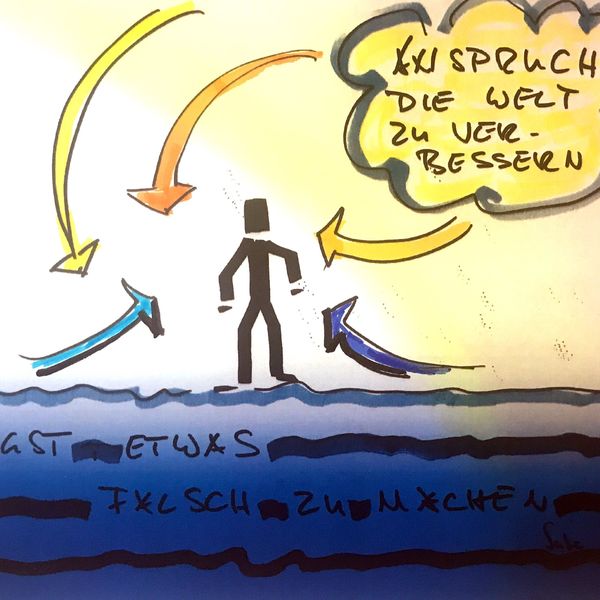 ANSPRUCH
DIE WELT
ZU VER-
BESSERN
GST ETWAS
FALSCH ZU MACHEN